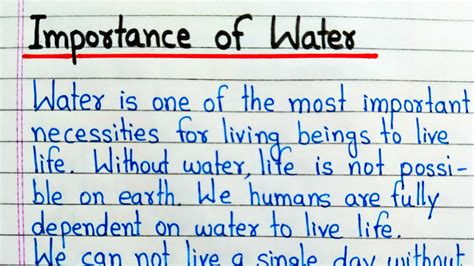 Importance of Water
Water is one of the most important
necessities for living beings to live
life. Without water, life is not possi-
ble on earth. We humans are fully
dependent on water to live life.
We can not live a single day without